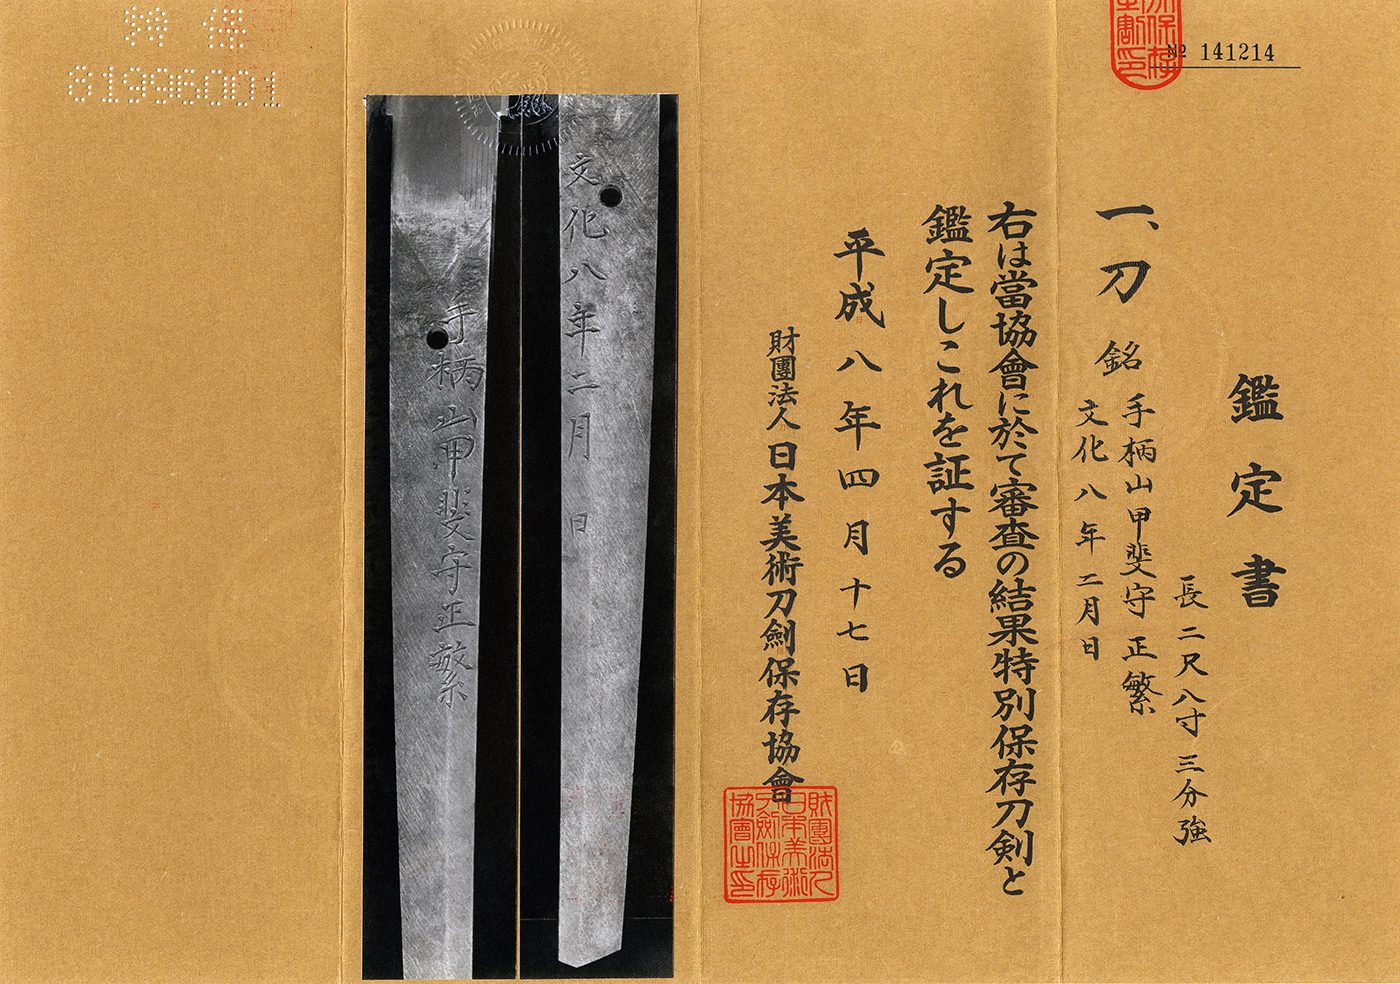 № 141214
鑑定書
長二尺八寸三分強
一、刀 銘 手柄山甲斐守正繁
文化八年二月日
右は當協會に於て審査の結果特別保存刀剣と
鑑定しこれを証する
平成八年四月十七日
財團法人日本美術刀劍保存協會
財團法人
日本美術
刀劍保存
協會之印
文化八年二月日
手柄山甲斐守正繁
特保
81996001